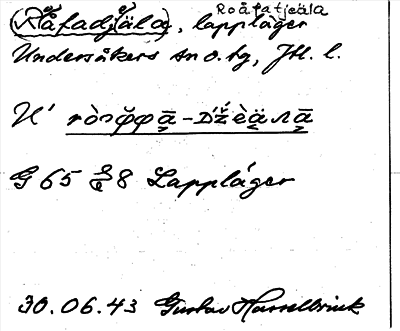 Roåfatjeäla
Råfadjäla, lappläger
Undersåkers sn o. tg, Jtl. l.
G 65 8 Lappläger
30.06.43 Gustav Hasselbrink